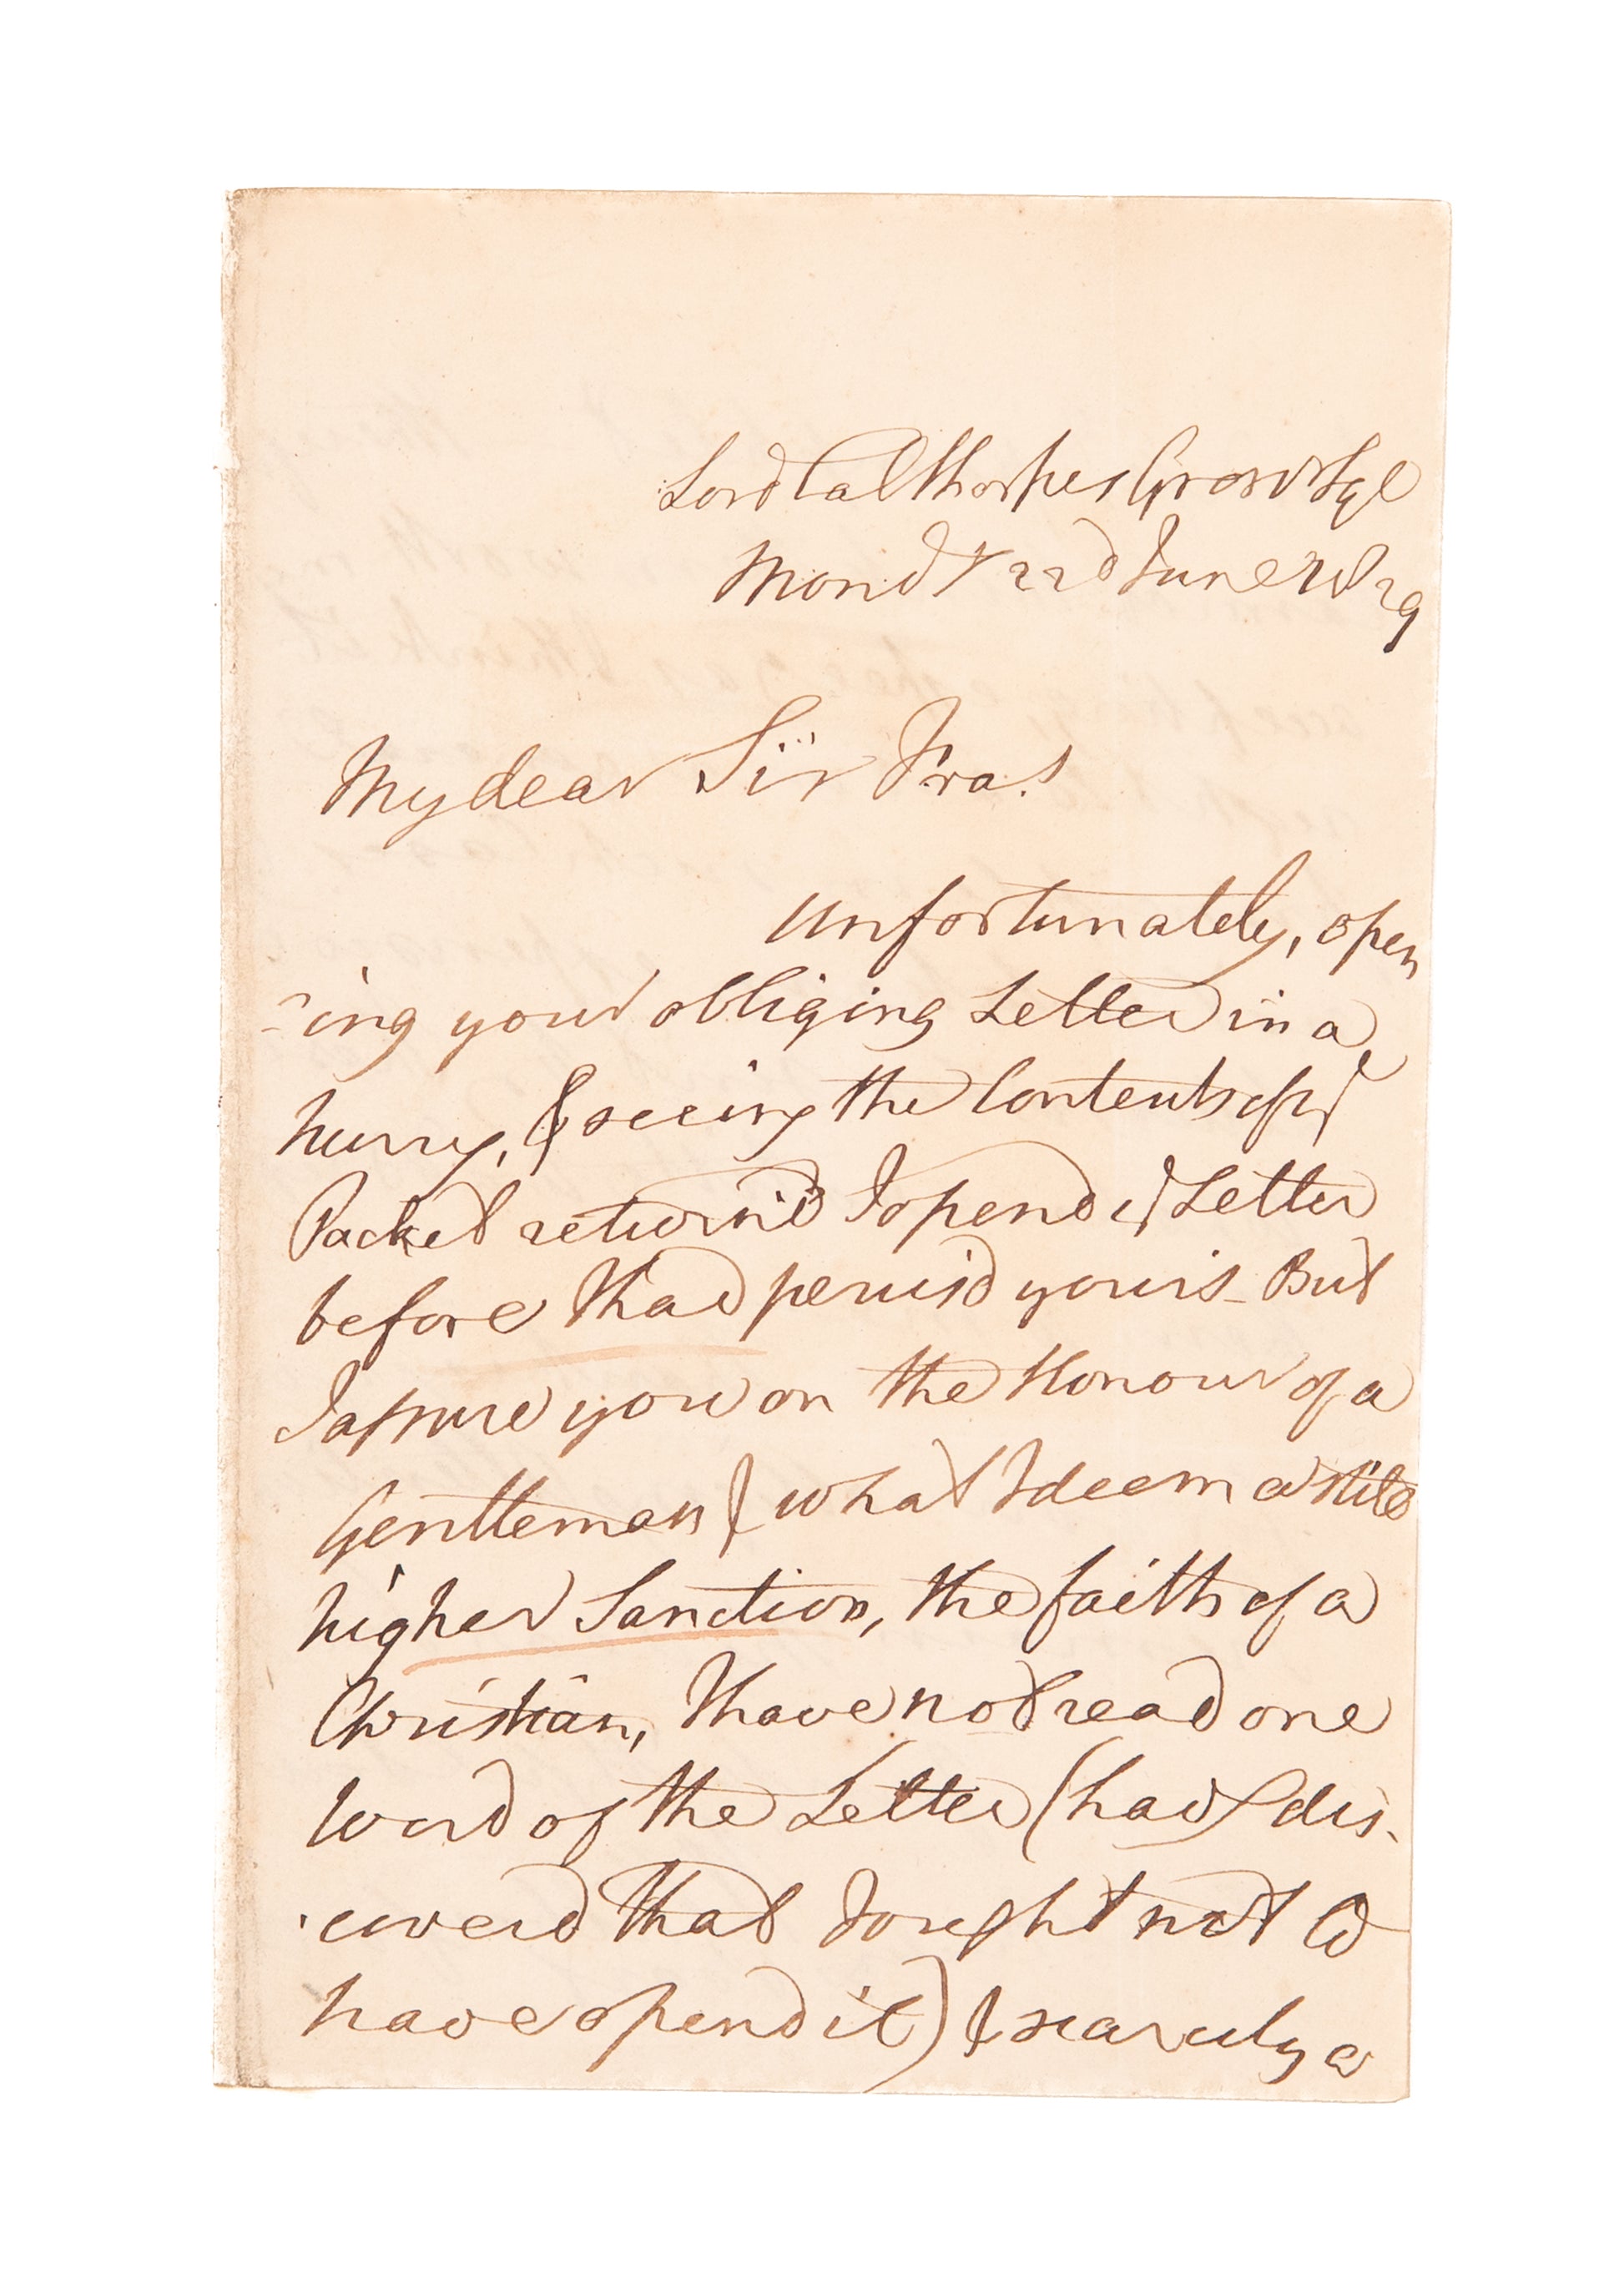 Lord Calthorpes Grosvr Sqe
Mondy 22d June 1829
My dear Sir Fras
Unfortunately, open
-ing your obliging Letter in a
hurry, & seeing the Contents of ye
Packet return'd I opend ye Letter
before I had perus'd yours - But
I assure you on the Honour of a
Gentleman & what I deem a still
higher Sanction, the faith of a
Christian, I have not read one
Word of the Letter (havg dis-
-cover'd that I ought not to
have opend it) & scarcely a